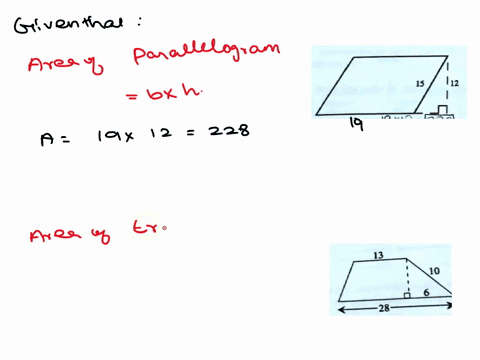 Griventhat :
Area of Parallelogram
= b x h.
A = 19 x 12 = 228
15
12
19
Area of tr
13
10
6
28